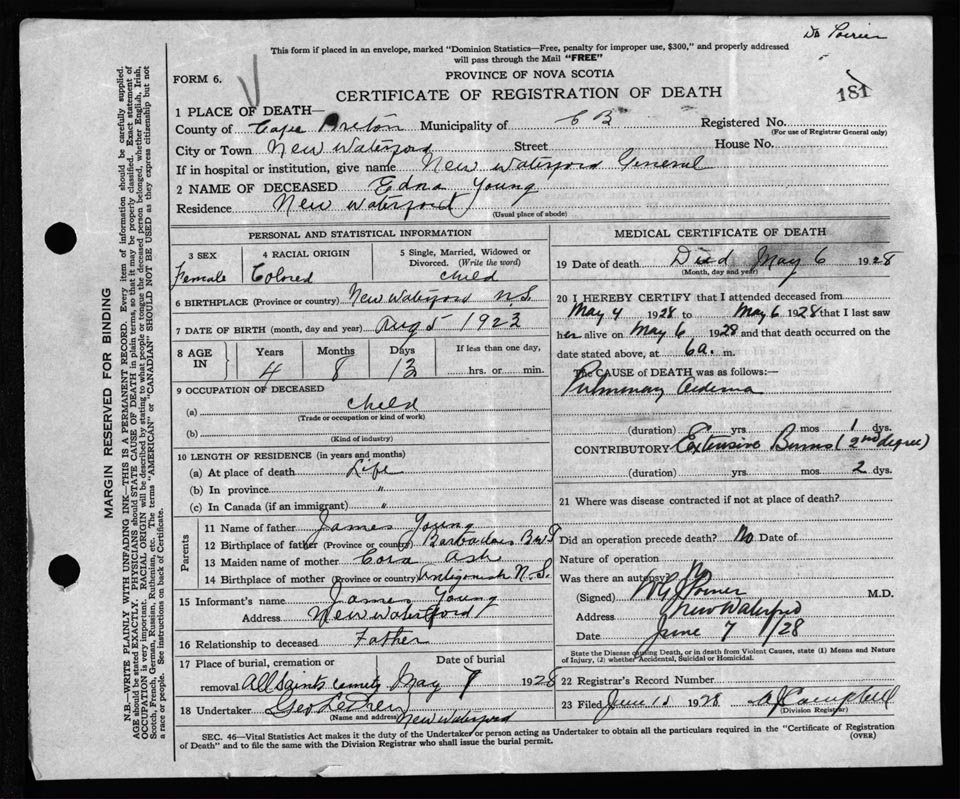 Dr Poirier
This form if placed in an envelope, marked "Dominion Statistics—Free, penalty for improper use, $300," and properly addressed
will pass through the Mail "FREE"
FORM 6.
PROVINCE OF NOVA SCOTIA
CERTIFICATE OF REGISTRATION OF DEATH
181
1 PLACE OF DEATH—
County of Cape Breton Municipality of C B Registered No.
(For use of Registrar General only)
City or Town New Waterford Street House No.
If in hospital or institution, give name New Waterford General
2 NAME OF DECEASED Edna Young
Residence New Waterford
(Usual place of abode)
PERSONAL AND STATISTICAL INFORMATION
3 SEX
Female
4 RACIAL ORIGIN
Colored
5 Single, Married, Widowed or
Divorced. (Write the word)
child
6 BIRTHPLACE (Province or country) New Waterford N.S.
7 DATE OF BIRTH (month, day and year) Aug 5 1923
8 AGE IN
Years Months Days If less than one day,
4 8 13 hrs. or min.
9 OCCUPATION OF DECEASED
(a) child
(Trade or occupation or kind of work)
(b)
(Kind of industry)
10 LENGTH OF RESIDENCE (in years and months)
(a) At place of death Life
(b) In province "
(c) In Canada (if an immigrant) "
Parents
11 Name of father James Young
12 Birthplace of father (Province or country) Barbadoes B W I
13 Maiden name of mother Cora Ash
14 Birthplace of mother (Province or country) Antigonish N.S.
15 Informant's name James Young
Address New Waterford
16 Relationship to deceased Father
17 Place of burial, cremation or Date of burial
removal All Saints cemety May 7 1928
18 Undertaker Geo Lethen
(Name and address) New Waterford
MEDICAL CERTIFICATE OF DEATH
19 Date of death Died May 6 1928
(Month, day and year)
20 I HEREBY CERTIFY that I attended deceased from
May 4 1928 to May 6 1928 that I last saw
her alive on May 6 1928 and that death occurred on the
date stated above, at 6a. m.
The CAUSE of DEATH was as follows:—
Pulmonary Oedema
(duration) yrs mos 1 dys.
CONTRIBUTORY Extensive Burns (2nd degree)
(duration) yrs. mos 2 dys.
21 Where was disease contracted if not at place of death?
Did an operation precede death? No Date of
Nature of operation
Was there an autopsy? No
(Signed) Poirier M.D.
Address New Waterford
Date June 7 1/28
State the Disease causing Death, or in death from Violent Causes, state (1) Means and Nature
of Injury, (2) whether Accidental, Suicidal or Homicidal.
22 Registrar's Record Number
23 Filed June 12 1928 A J Campbell
(Division Registrar)
SEC. 46—Vital Statistics Act makes it the duty of the Undertaker or person acting as Undertaker to obtain all the particulars required in the "Certificate of Registration
of Death" and to file the same with the Division Registrar who shall issue the burial permit. (OVER)
MARGIN RESERVED FOR BINDING
N.B.—WRITE PLAINLY WITH UNFADING INK—THIS IS A PERMANENT RECORD. Every item of information should be carefully supplied.
AGE should be stated EXACTLY. PHYSICIANS should STATE CAUSE OF DEATH in plain terms, so that it may be properly classified. Exact statement of
OCCUPATION is very important. RACIAL ORIGIN will be described by stating to what people or tongue the deceased person belonged, whether English, Irish,
Scotch, French, German, Russian, Ruthenian, etc. The terms "AMERICAN" or "CANADIAN" SHOULD NOT BE USED as they express citizenship but not
a race or people. See instructions on back of Certificate.